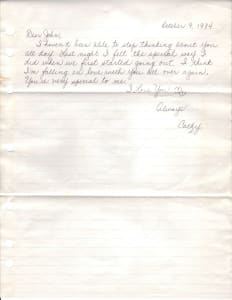 October 9, 1984
Dear John,
I haven't been able to stop thinking about you
all day. Last night I felt the special way I
did when we first started going out. I think
I'm falling in love with you all over again.
You're very special to me.
I Love You!
Always
Cathy